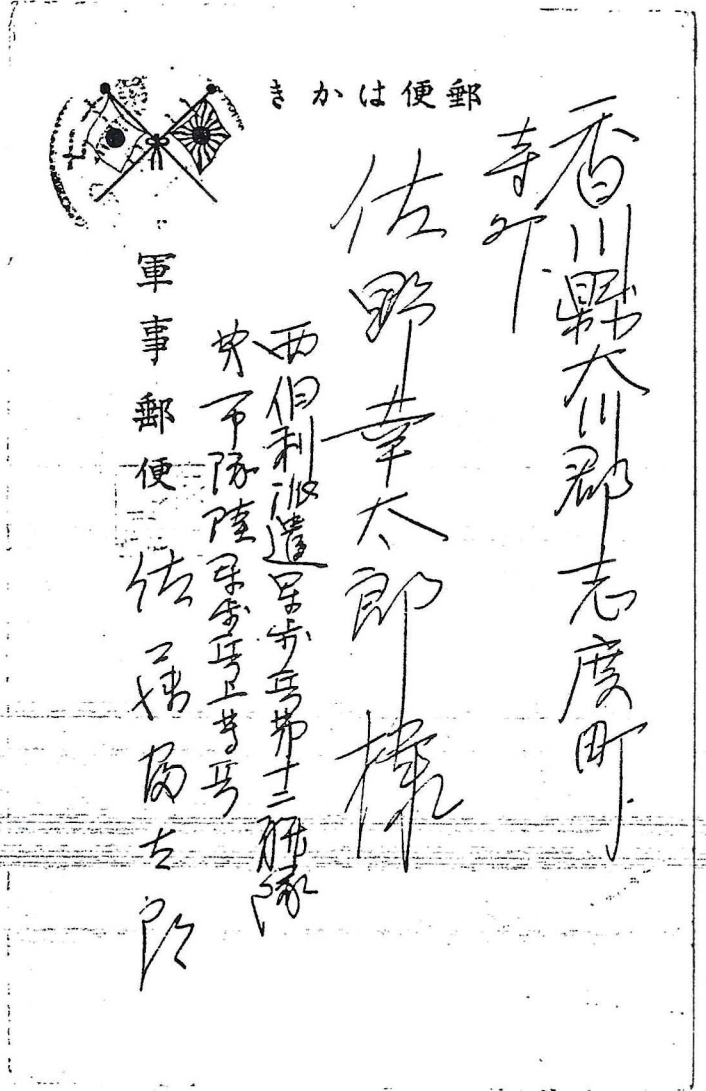 郵便はかき
香川縣大川郡志度町
寺町
佐野幸太郎様
西伯利派遣軍歩兵第十二聯隊
隊陸軍歩兵上等兵
軍事郵便
佐藤